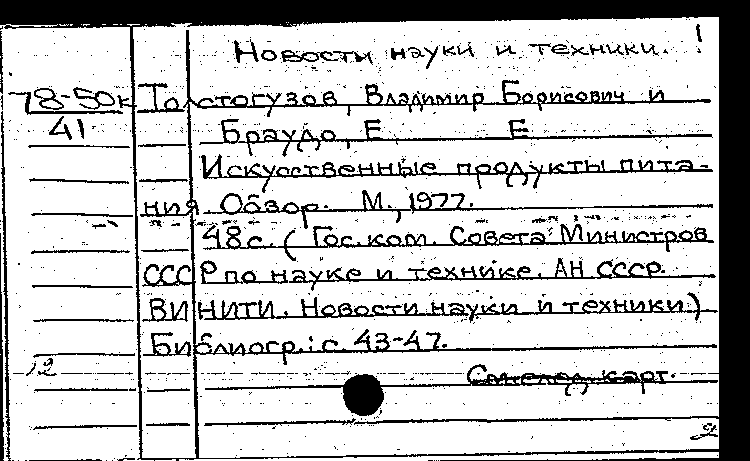 Новости науки и техники. !
78-50к Толстогузов, Владимир Борисович и
41 Браудо, Е Е
Искусственные продукты пита-
ния. Обзор. М., 1977.
48с. (Гос.ком. Совета Министров
СССР по науке и технике. АН СССР.
ВИНИТИ. Новости науки и техники)
Библиогр.: с. 43-47.
12
См.след. карт.
2